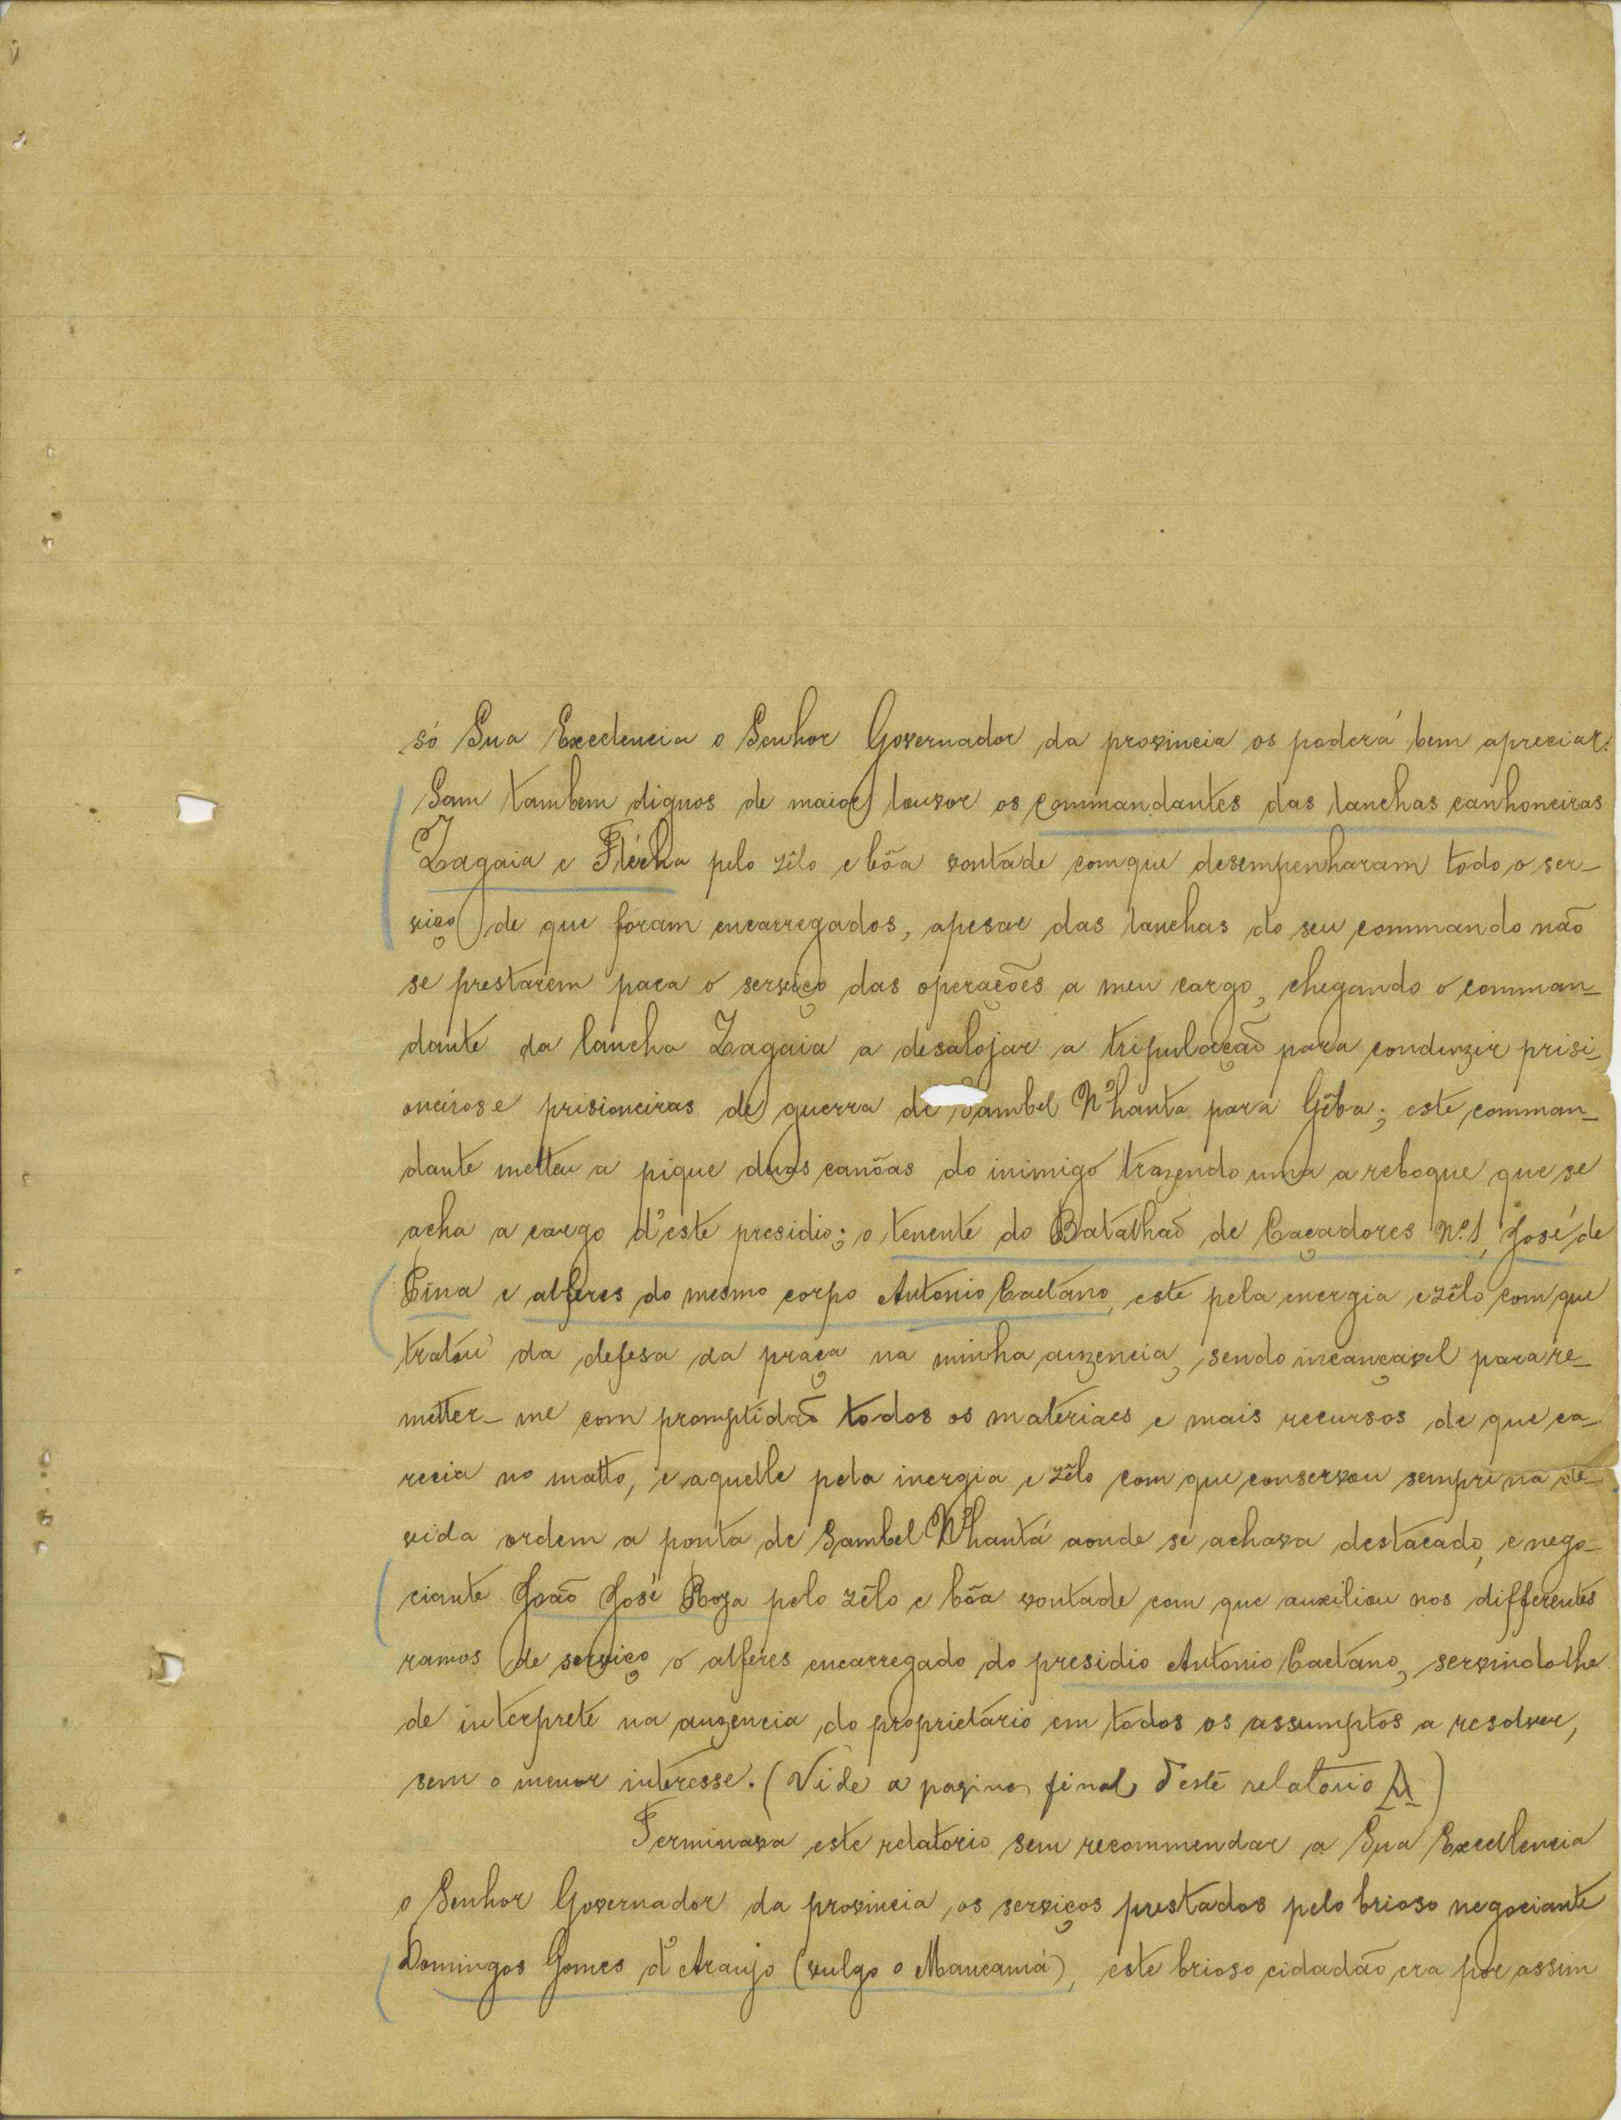 só Sua Excelencia o Senhor Governador da provincia os poderá bem apreciar.
Sam tambem dignos de maior louvor os commandantes das lanchas canhoneiras
Zagaia e Flécha pelo zêlo e bôa vontade com que desempenharam todo o ser-
viço de que foram encarregados, apesar das lanchas do seu commando não
se prestarem para o serviço das operações a meu cargo, chegando o comman-
dante da lancha Zagaia a desalojar a tripulação para conduzir prisi-
oneiros e prisioneiras de guerra de Sambel N'hanta para Gêba; este comman-
dante metteu a pique duas canôas do inimigo trazendo uma a reboque que se
acha a cargo d'este presidio; o tenente do Batalhão de Caçadores Nº 1, José de
Pina e alferes do mesmo corpo Antonio Caetano, este pela energia e zêlo com que
tratou da defesa da praça na minha auzencia, sendo incançavel para re-
metter-me com promptidão todos os materiaes e mais recursos de que ca-
recia no matto, e aquelle pela inergia e zêlo com que conservou sempre na de-
vida ordem a ponta de Sambel N'hantá aonde se achava destacado, e nego-
ciante João José Roza pelo zêlo e bôa vontade com que auxiliou nos differentes
ramos de serviço o alferes encarregado do presidio Antonio Caetano, servindo lhe
de interprete na auzencia do proprietário em todos os assumptos a resolver,
sem o menor interesse. (Vide a pagina final d'este relatorio A)
Terminava este relatorio sem recommendar a Sua Excellencia
o Senhor Governador da provincia os serviços prestados pelo brioso negociante
Domingos Gomes d'Araujo (vulgo o Mancamá), este brioso cidadão era por assim